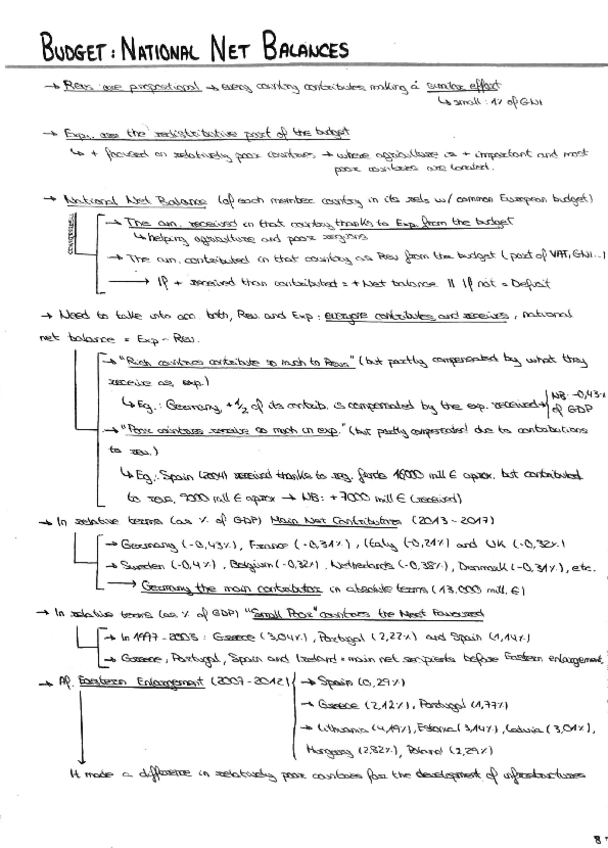 BUDGET: NATIONAL NET BALANCES
→ Revs are proportional → every country contributes making a similar effort
↳ small: 1% of GNI
→ Exp. are the redistributive part of the budget
↳ + focused on relatively poor countries → where agriculture is + important and most
poor countries are located.
→ National Net Balance (of each member country in its rels w/ common European budget)
→ The am. received in that country thanks to Exp. from the budget
↳ helping agriculture and poor regions
→ The am. contributed in that country as Rev from the budget (part of VAT, GNI...)
→ If + received than contributed = + Net balance || If not = Deficit
→ Need to take into acc. both, Rev and Exp: everyone contributes and receives, national
net balance = Exp - Rev.
→ "Rich countries contribute so much to Revs" (but partly compensated by what they
receive as exp.)
↳ Eg.: Germany, + 1/2 of its contrib. is compensated by the exp. received → NB: -0,43%
of GDP
→ "Poor countries receive so much in exp." (but partly compensated due to contributions
to rev.)
↳ Eg: Spain (2014) received thanks to reg. funds 16000 mill € aprox. but contributed
to revs, 9000 mill € aprox → NB: + 7000 mill € (received)
→ In relative terms (as % of GDP) Main Net Contributors (2013-2017)
→ Germany (-0,43%), France (-0,31%), Italy (-0,21%) and UK (-0,32%)
→ Sweden (-0,4%), Belgium (-0,32%), Netherlands (-0,38%), Denmark (-0,31%), etc.
→ Germany the main contributor in absolute terms (13.000 mill. €)
→ In relative terms (as % of GDP) "Small Poor" countries the Most Favoured
→ In 1997-2005: Greece (3,04%), Portugal (2,22%) and Spain (1,14%)
→ Greece, Portugal, Spain and Ireland = main net recipients before Eastern enlargement
→ Af. Eastern Enlargement (2007-2012)
→ Spain (0,29%)
→ Greece (2,12%), Portugal (1,77%)
→ Lithuania (4,19%), Estonia (3,14%), Latvia (3,01%),
Hungary (2,82%), Poland (2,29%)
It made a difference in relatively poor countries for the development of infrastructures
8